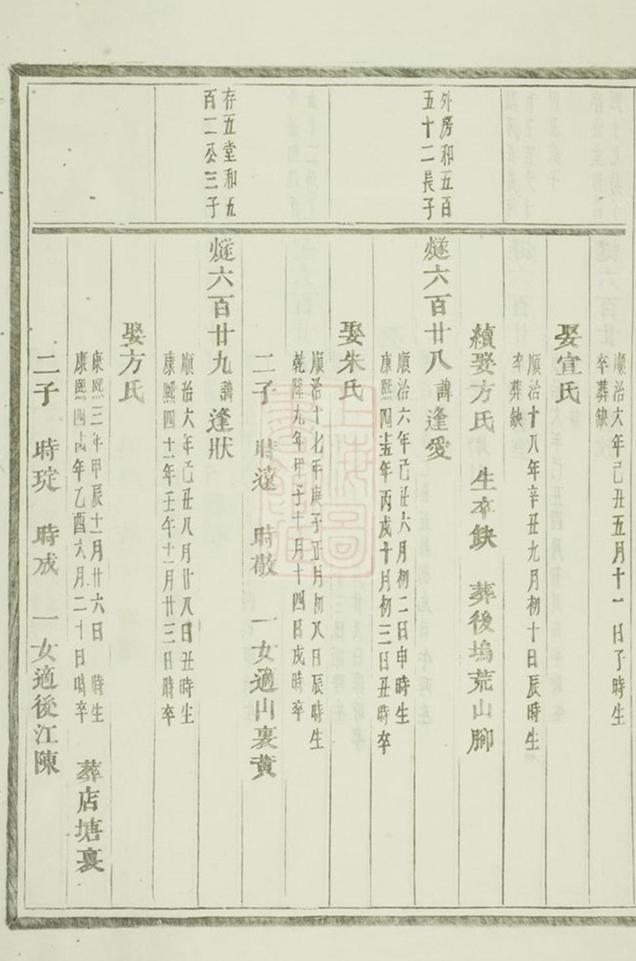 順治六年己丑五月十一日子時生
卒葬缺
娶宣氏
順治十八年辛丑九月初十日辰時生
卒葬缺
續娶方氏 生卒缺 葬後塢荒山腳
外房和五百
五十二長子
燧六百廿八 諱逢愛
順治六年己丑六月初二日申時生
康熙四十五年丙戌十月初三日丑時卒
娶朱氏
順治十七年庚子正月初八日辰時生
乾隆九年甲子十月十四日戌時卒
二子 時遠 時敬 一女適山裏黃
存五堂和五
百二公三子
燧六百廿九 諱逢狀
順治六年己丑八月廿八日丑時生
康熙四十一年壬午十一月廿三日時卒
娶方氏
康熙三年甲辰十一月廿六日 時生
康熙四十四年乙酉六月二十日 時卒 葬店塘裏
二子 時琔 時成 一女適後江陳